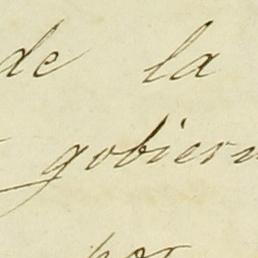 de la
gobiern
por